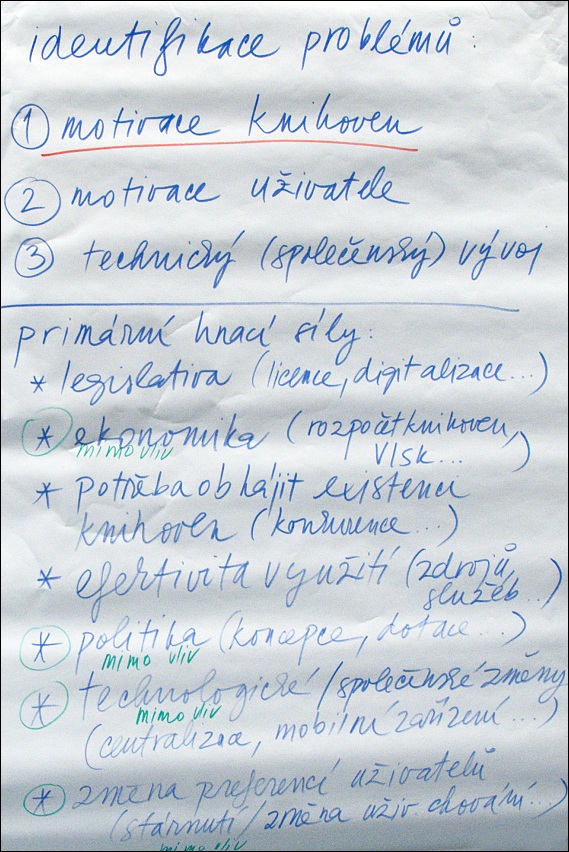 identifikace problémů:
① motivace knihoven
② motivace uživatele
③ technický (společenský) vývoj
primární hnací síly:
* legislativa (licence, digitalizace...)
* ekonomika (rozpočět knihoven,
mimo vliv
VISK...)
* potřeba obhájit existenci
knihoven (konkurence...)
* efektivita využití (zdrojů,
služeb...)
* politika (koncepce, dotace...)
mimo vliv
* technologické / společenské změny
mimo vliv
(centralizace, mobilní zařízení...)
* změna preferencí uživatelů
(stárnutí / změna uživ. chování...)
mimo vliv